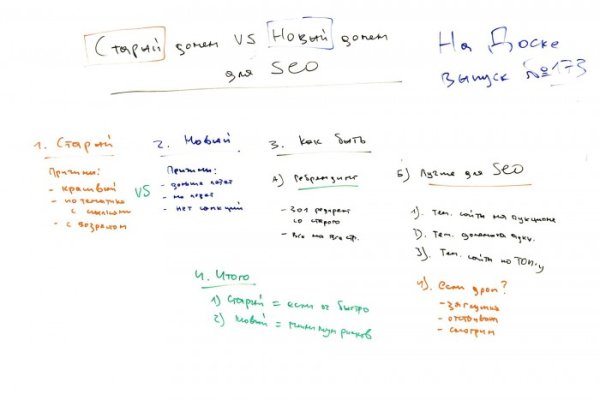 Старый домен VS Новый домен
для SEO
На Доске
выпуск №173
1. Старый
Причины:
- красивый
- по тематике
с ссылками
- с возрастом
VS
2. Новый
Причины:
- дольше
- не
- нет санкций
3. Как быть
А) Ребрендинг
- 301 редирект
со старого
- Все на все стр.
Б) Лучше для SEO
1). Тем. сайты на аукционе
2). Тем. домена аукц.
3). Тем. сайты по ТОП-у
4). если дроп?
- заглушка
- отстаивание
- смотрим
4. Итого
1) Старый = если ок быстро
2) Новый = минимум рисков